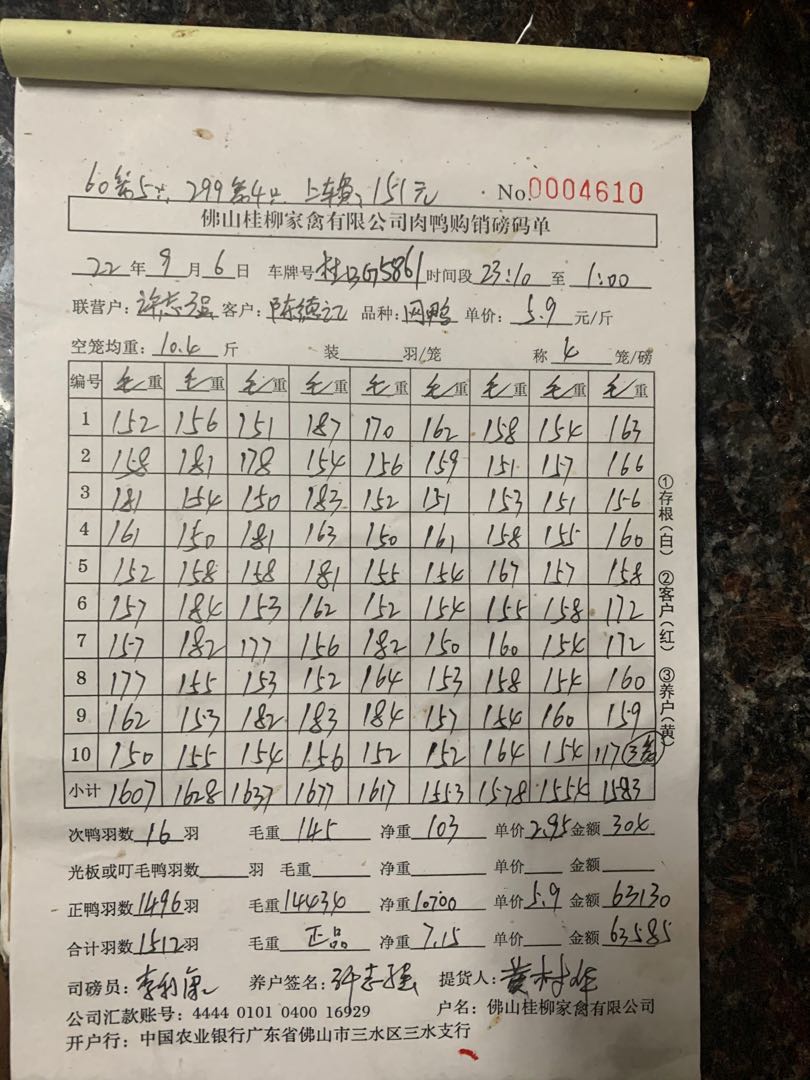 60笼5只, 299笼4只 上车费: 151元 · No.0004610
佛山桂柳家禽有限公司肉鸭购销磅码单
22年9月6日 车牌号 桂 G5861 时间段 23:10 至 1:00
联营户: 许志强 客户: 陈德记 品种: 网鸭 单价: 5.9 元/斤
空笼均重: 10.4 斤 装 羽/笼 称 4 笼/磅
编号 毛重 毛重 毛重 毛重 毛重 毛重 毛重 毛重 毛重
1 152 156 151 187 170 162 158 154 163
2 158 181 178 154 156 159 151 157 166
3 181 154 150 183 152 151 153 151 156
4 161 150 181 163 150 161 158 155 160
5 152 158 158 181 155 154 167 157 158
6 157 184 153 162 152 154 155 158 172
7 157 182 177 156 182 150 160 154 172
8 177 155 153 152 164 153 158 154 160
9 162 153 182 183 184 157 154 160 159
10 150 155 154 156 152 152 164 154 117 3笼
小计 1607 1628 1637 1677 1617 1553 1578 1554 1583
次鸭羽数 16 羽 毛重 145 净重 103 单价 2.95 金额 304
光板或叮毛鸭羽数 羽 毛重 净重 单价 金额
正鸭羽数 1496 羽 毛重 14434 净重 10700 单价 5.9 金额 63130
合计羽数 1512 羽 毛重 正品 净重 7.15 单价 金额 63585
司磅员: 李利 养户签名: 许志强 提货人: 黄村
公司汇款账号: 4444 0101 0400 16929 户名: 佛山桂柳家禽有限公司
开户行: 中国农业银行广东省佛山市三水区三水支行
①存根(白) ②客户(红) ③养户(黄)